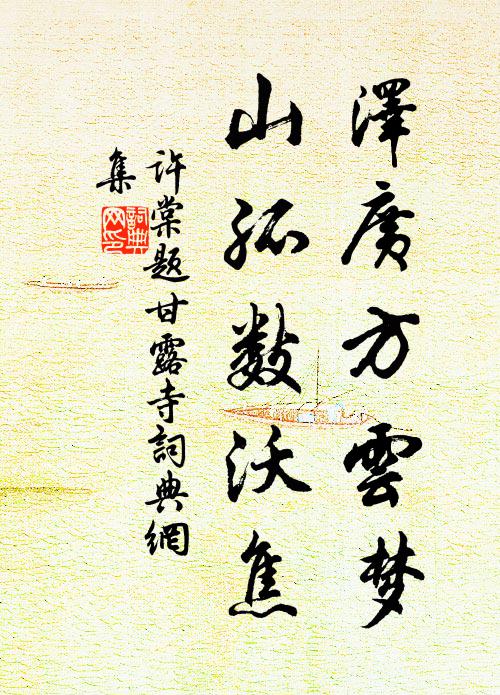 澤廣方雲梦
山孤數沃焦
許棠题甘露寺詞典網
集
詞典
网印